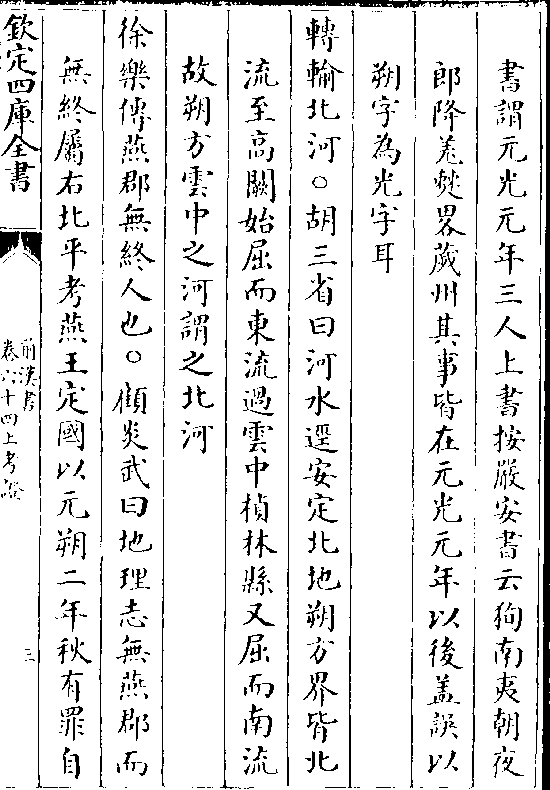 書謂元光元年三人上書按嚴安書云狥南夷朝夜
郎降羗僰畧薉州其事皆在元光元年以後盖誤以
朔字為光字耳
轉輸北河○胡三省曰河水逕安定北地朔方界皆北
流至高闕始屈而東流過雲中楨林縣又屈而南流
故朔方雲中之河謂之北河
徐樂傳燕郡無終人也○顧炎武曰地理志無燕郡而
無終屬右北平考燕王定國以元朔二年秋有罪自
欽定四庫全書
前漢書
卷六十四上考證
三